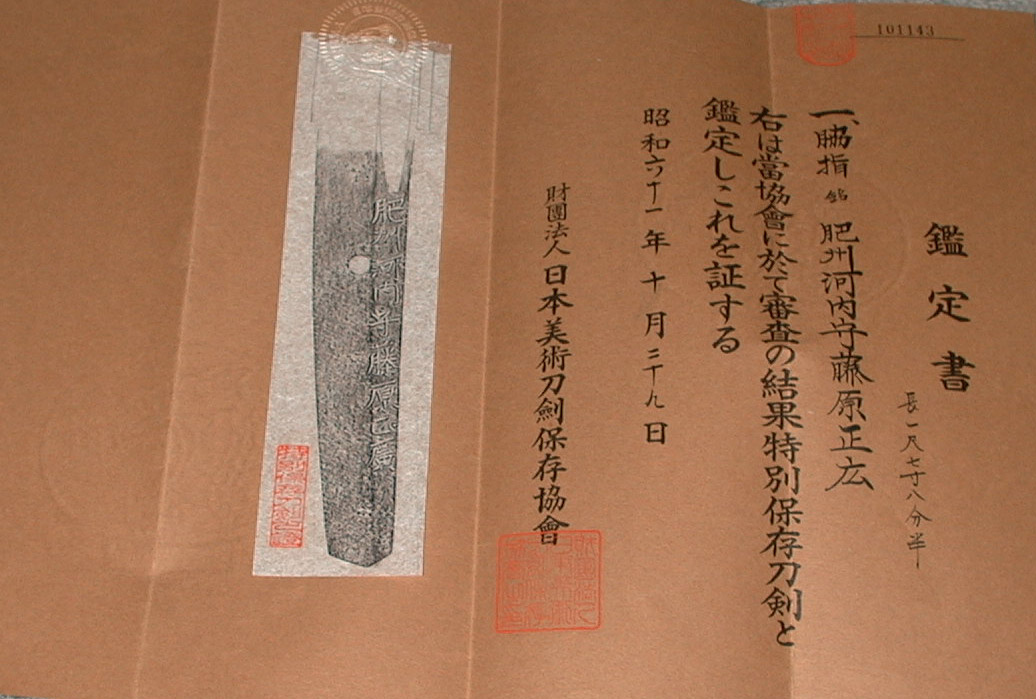 101143
鑑定書
長一尺七寸八分半
一、脇指 銘 肥州河内守藤原正広
右は當協會に於て審査の結果特別保存刀剣と
鑑定しこれを証する
昭和六十一年十月二十九日
財團法人日本美術刀劍保存協會
肥州河内守藤原正広